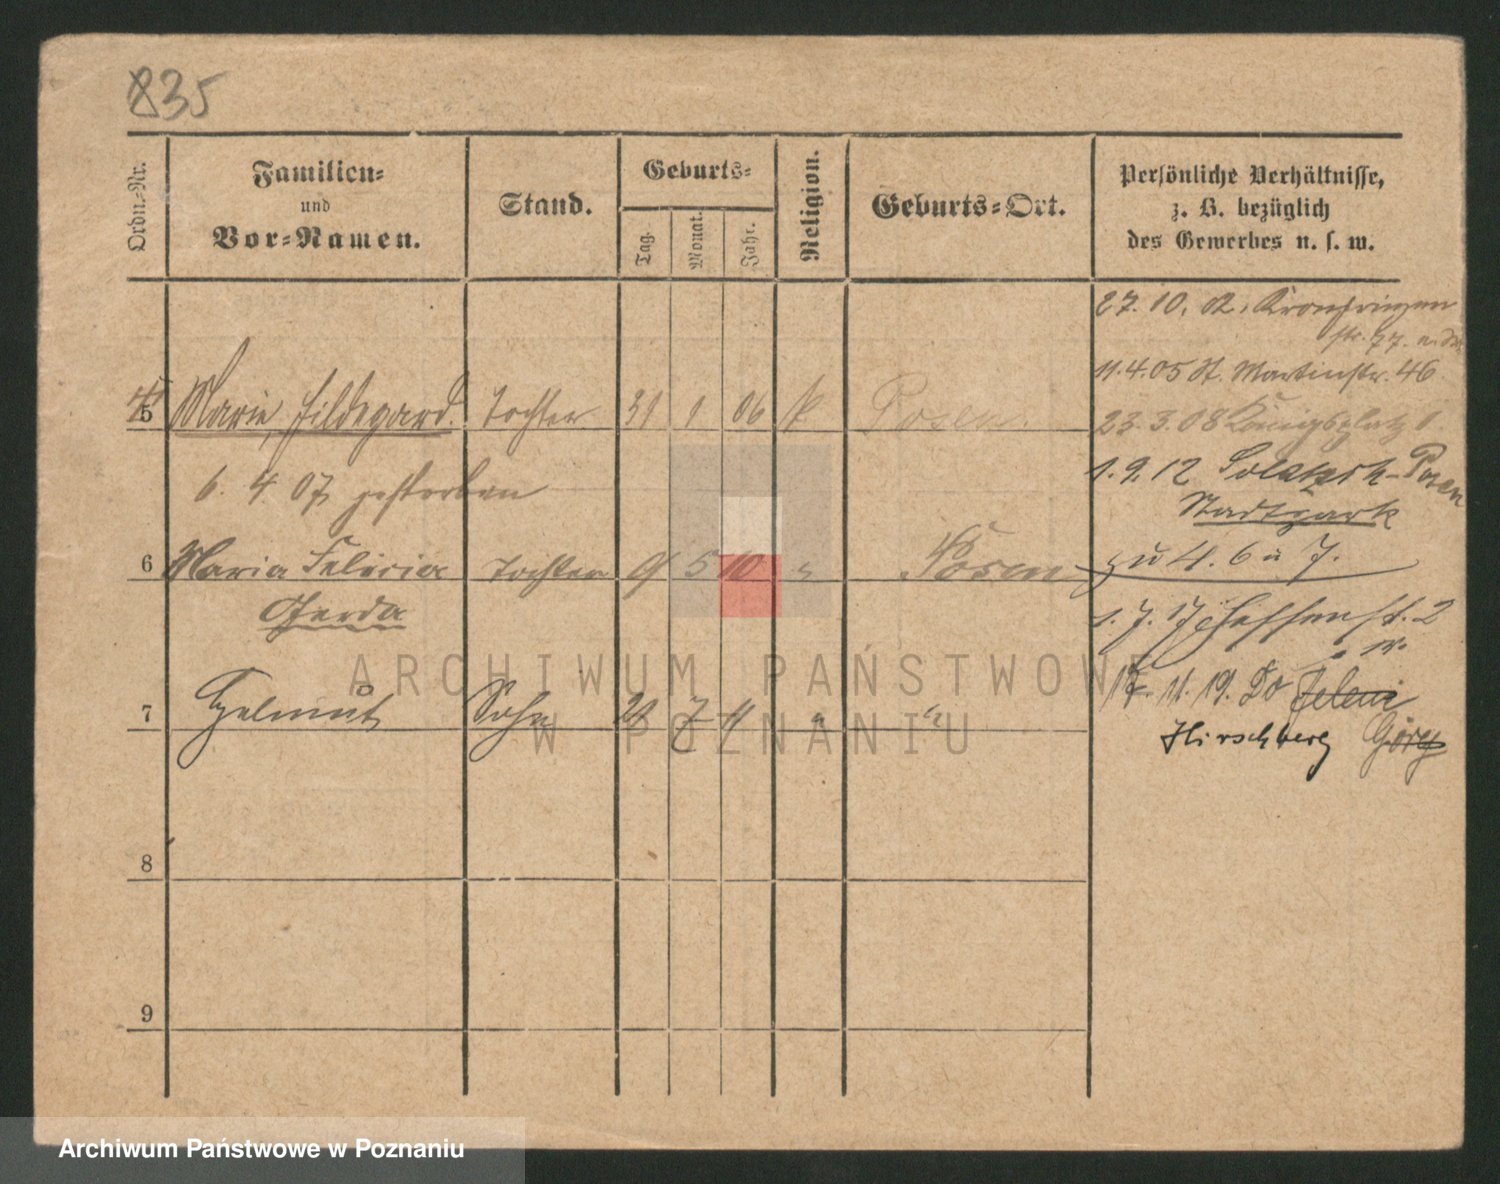 835
Ordn.-Nr.
Familien-
und
Vor-Namen.
Stand.
Geburts-
Tag.
Monat.
Jahr.
Religion.
Geburts-Ort.
Persönliche Verhältnisse,
z. B. bezüglich
des Gewerbes u. s. w.
27. 10. Kronprinzen
str. 77.
11.4.05 St. Martinstr. 46
5 Marie, Hildegard. Tochter 31 1 06 k Posen.
23.3.08 Königsplatz
6. 4 07 gestorben
1.9.12 Solatsch-Posen
Stadtpark
6 Maria Felicia Tochter 9 5 10 " Posen
zu 4. 6 u 7.
Gerda
1. 7. 17 2
7 Helmut Sohn 21 7 11 " "
11. 19.
Hirschberg
8
9
ARCHIWUM PAŃSTWOWE
W POZNANIU
Archiwum Państwowe w Poznaniu